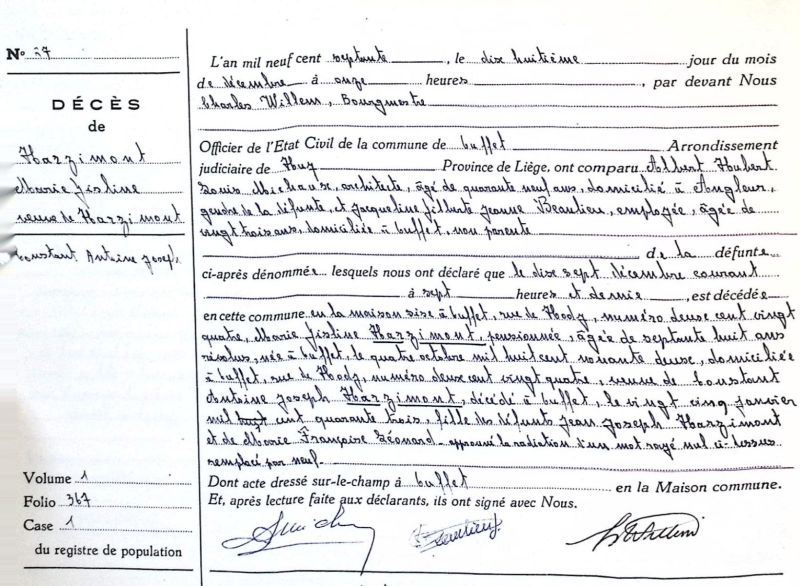 N° 27
DÉCÈS
de
Harzimont
Marie Gisline
veuve de Harzimont
Constant Antoine Joseph
Volume 1
Folio 367
Case 1
du registre de population
L'an mil neuf cent septante, le dix huitième jour du mois
de décembre à onze heures, par devant Nous
Charles Willem, Bourgmestre
Officier de l'Etat Civil de la commune de Buffet Arrondissement
judiciaire de Huy Province de Liège, ont comparu Albert Hubert
Louis Michaux, architecte, âgé de quarante neuf ans, domicilié à Angleur,
gendre de la défunte, et Jacqueline Gilberte Jeanne Beaulieu, employée, âgée de
vingt trois ans, domiciliée à Buffet, non parente
de la défunte
ci-après dénommée lesquels nous ont déclaré que le dix sept décembre courant
à sept heures et demie, est décédée
en cette commune en la maison sise à Buffet, rue de Hody, numéro deux cent vingt
quatre, Marie Gisline Harzimont, pensionnée, âgée de septante huit ans
révolus, née à Buffet, le quatre octobre mil huit cent nonante deux, domiciliée
à Buffet, rue de Hody, numéro deux cent vingt quatre, veuve de Constant
Antoine Joseph Harzimont, décédé à Buffet, le vingt cinq janvier
mil huit cent quarante trois, fille des défunts Jean Joseph Harzimont
et de Marie Françoise Léonard - approuvé la radiation d'un mot rayé nul ci-dessus
remplacé par neuf.
Dont acte dressé sur-le-champ à Buffet en la Maison commune.
Et, après lecture faite aux déclarants, ils ont signé avec Nous.